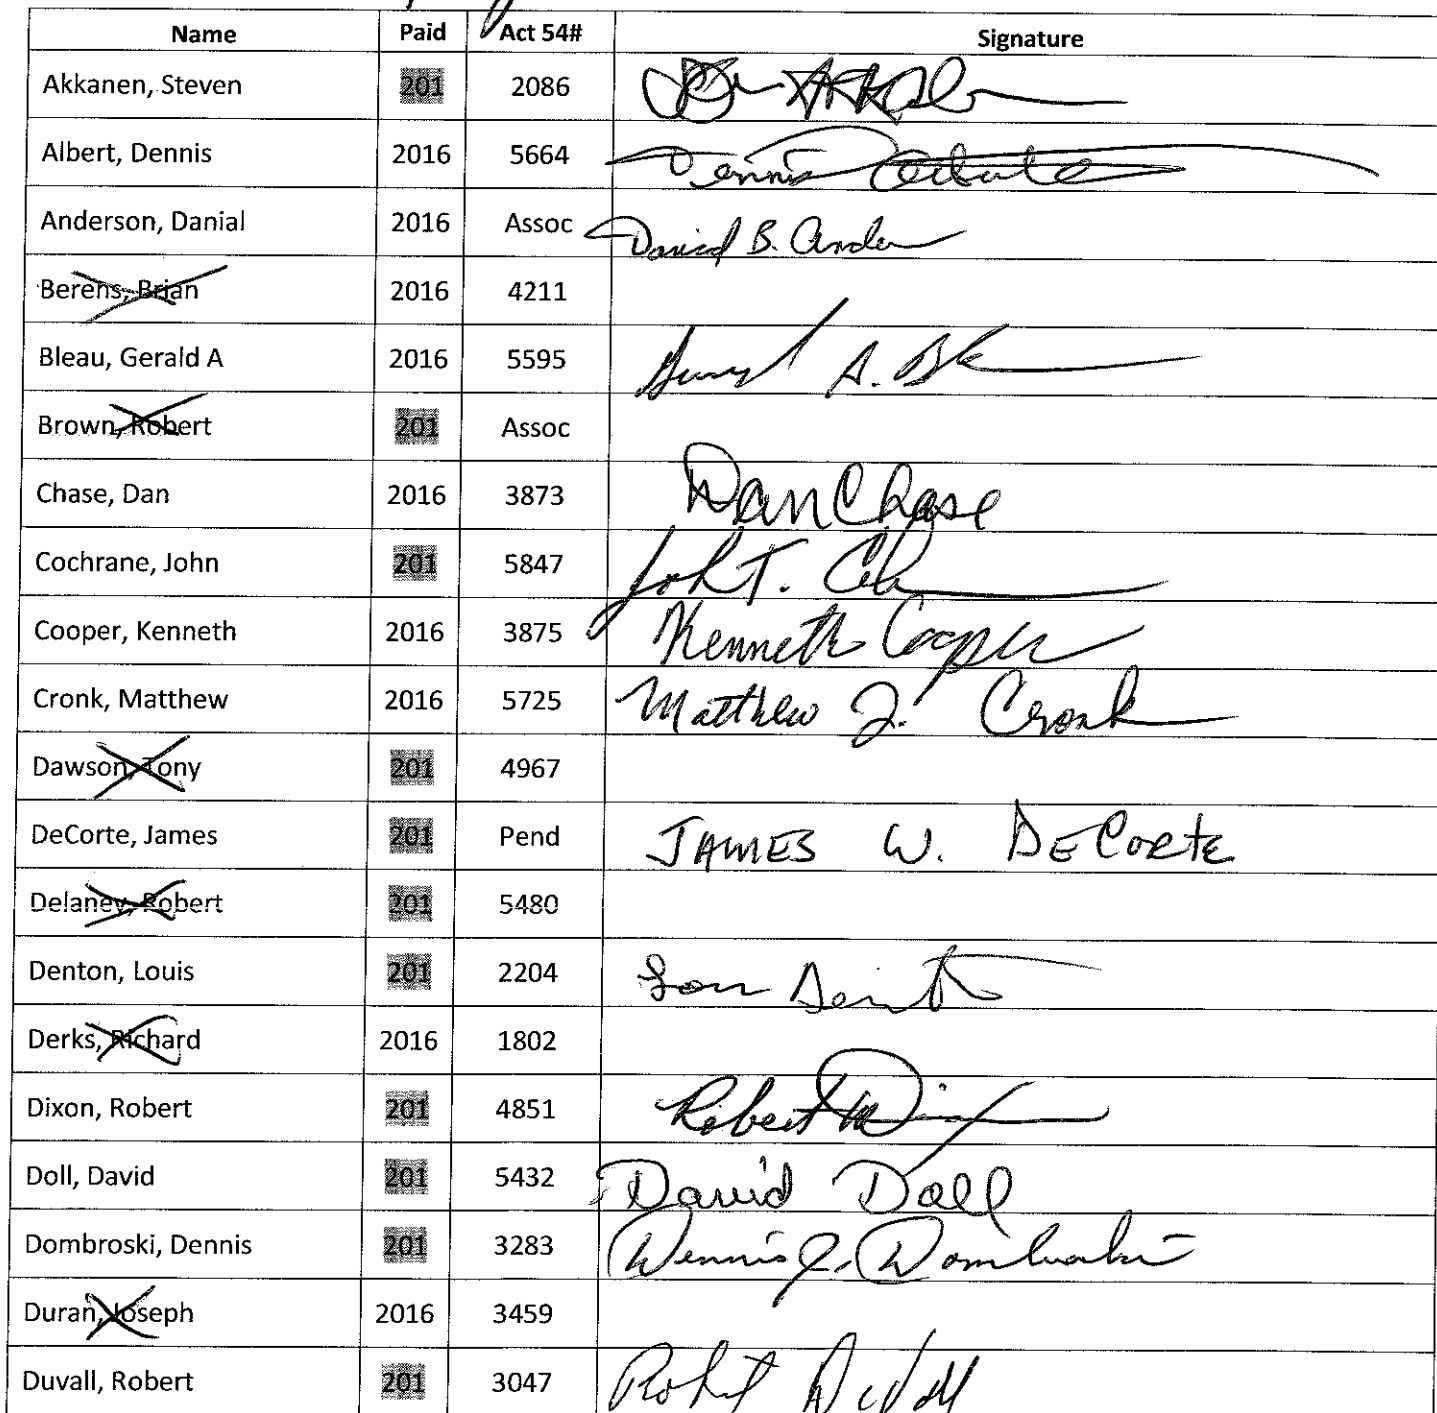 Name Paid Act 54# Signature
Akkanen, Steven 201 2086
Albert, Dennis 2016 5664 Dennis
Anderson, Danial 2016 Assoc B.
Berens, Brian 2016 4211
Bleau, Gerald A 2016 5595 A.
Brown, Robert 201 Assoc
Chase, Dan 2016 3873 Dan Chase
Cochrane, John 201 5847 John T.
Cooper, Kenneth 2016 3875 Kenneth Cooper
Cronk, Matthew 2016 5725 Matthew J. Cronk
Dawson, Tony 201 4967
DeCorte, James 201 Pend JAMES W. DECORTE
Delaney, Robert 201 5480
Denton, Louis 201 2204 Lou Denton
Derks, Richard 2016 1802
Dixon, Robert 201 4851 Robert
Doll, David 201 5432 David Doll
Dombroski, Dennis 201 3283 Dennis J. Dombroski
Duran, Joseph 2016 3459
Duvall, Robert 201 3047 Robert Duvall